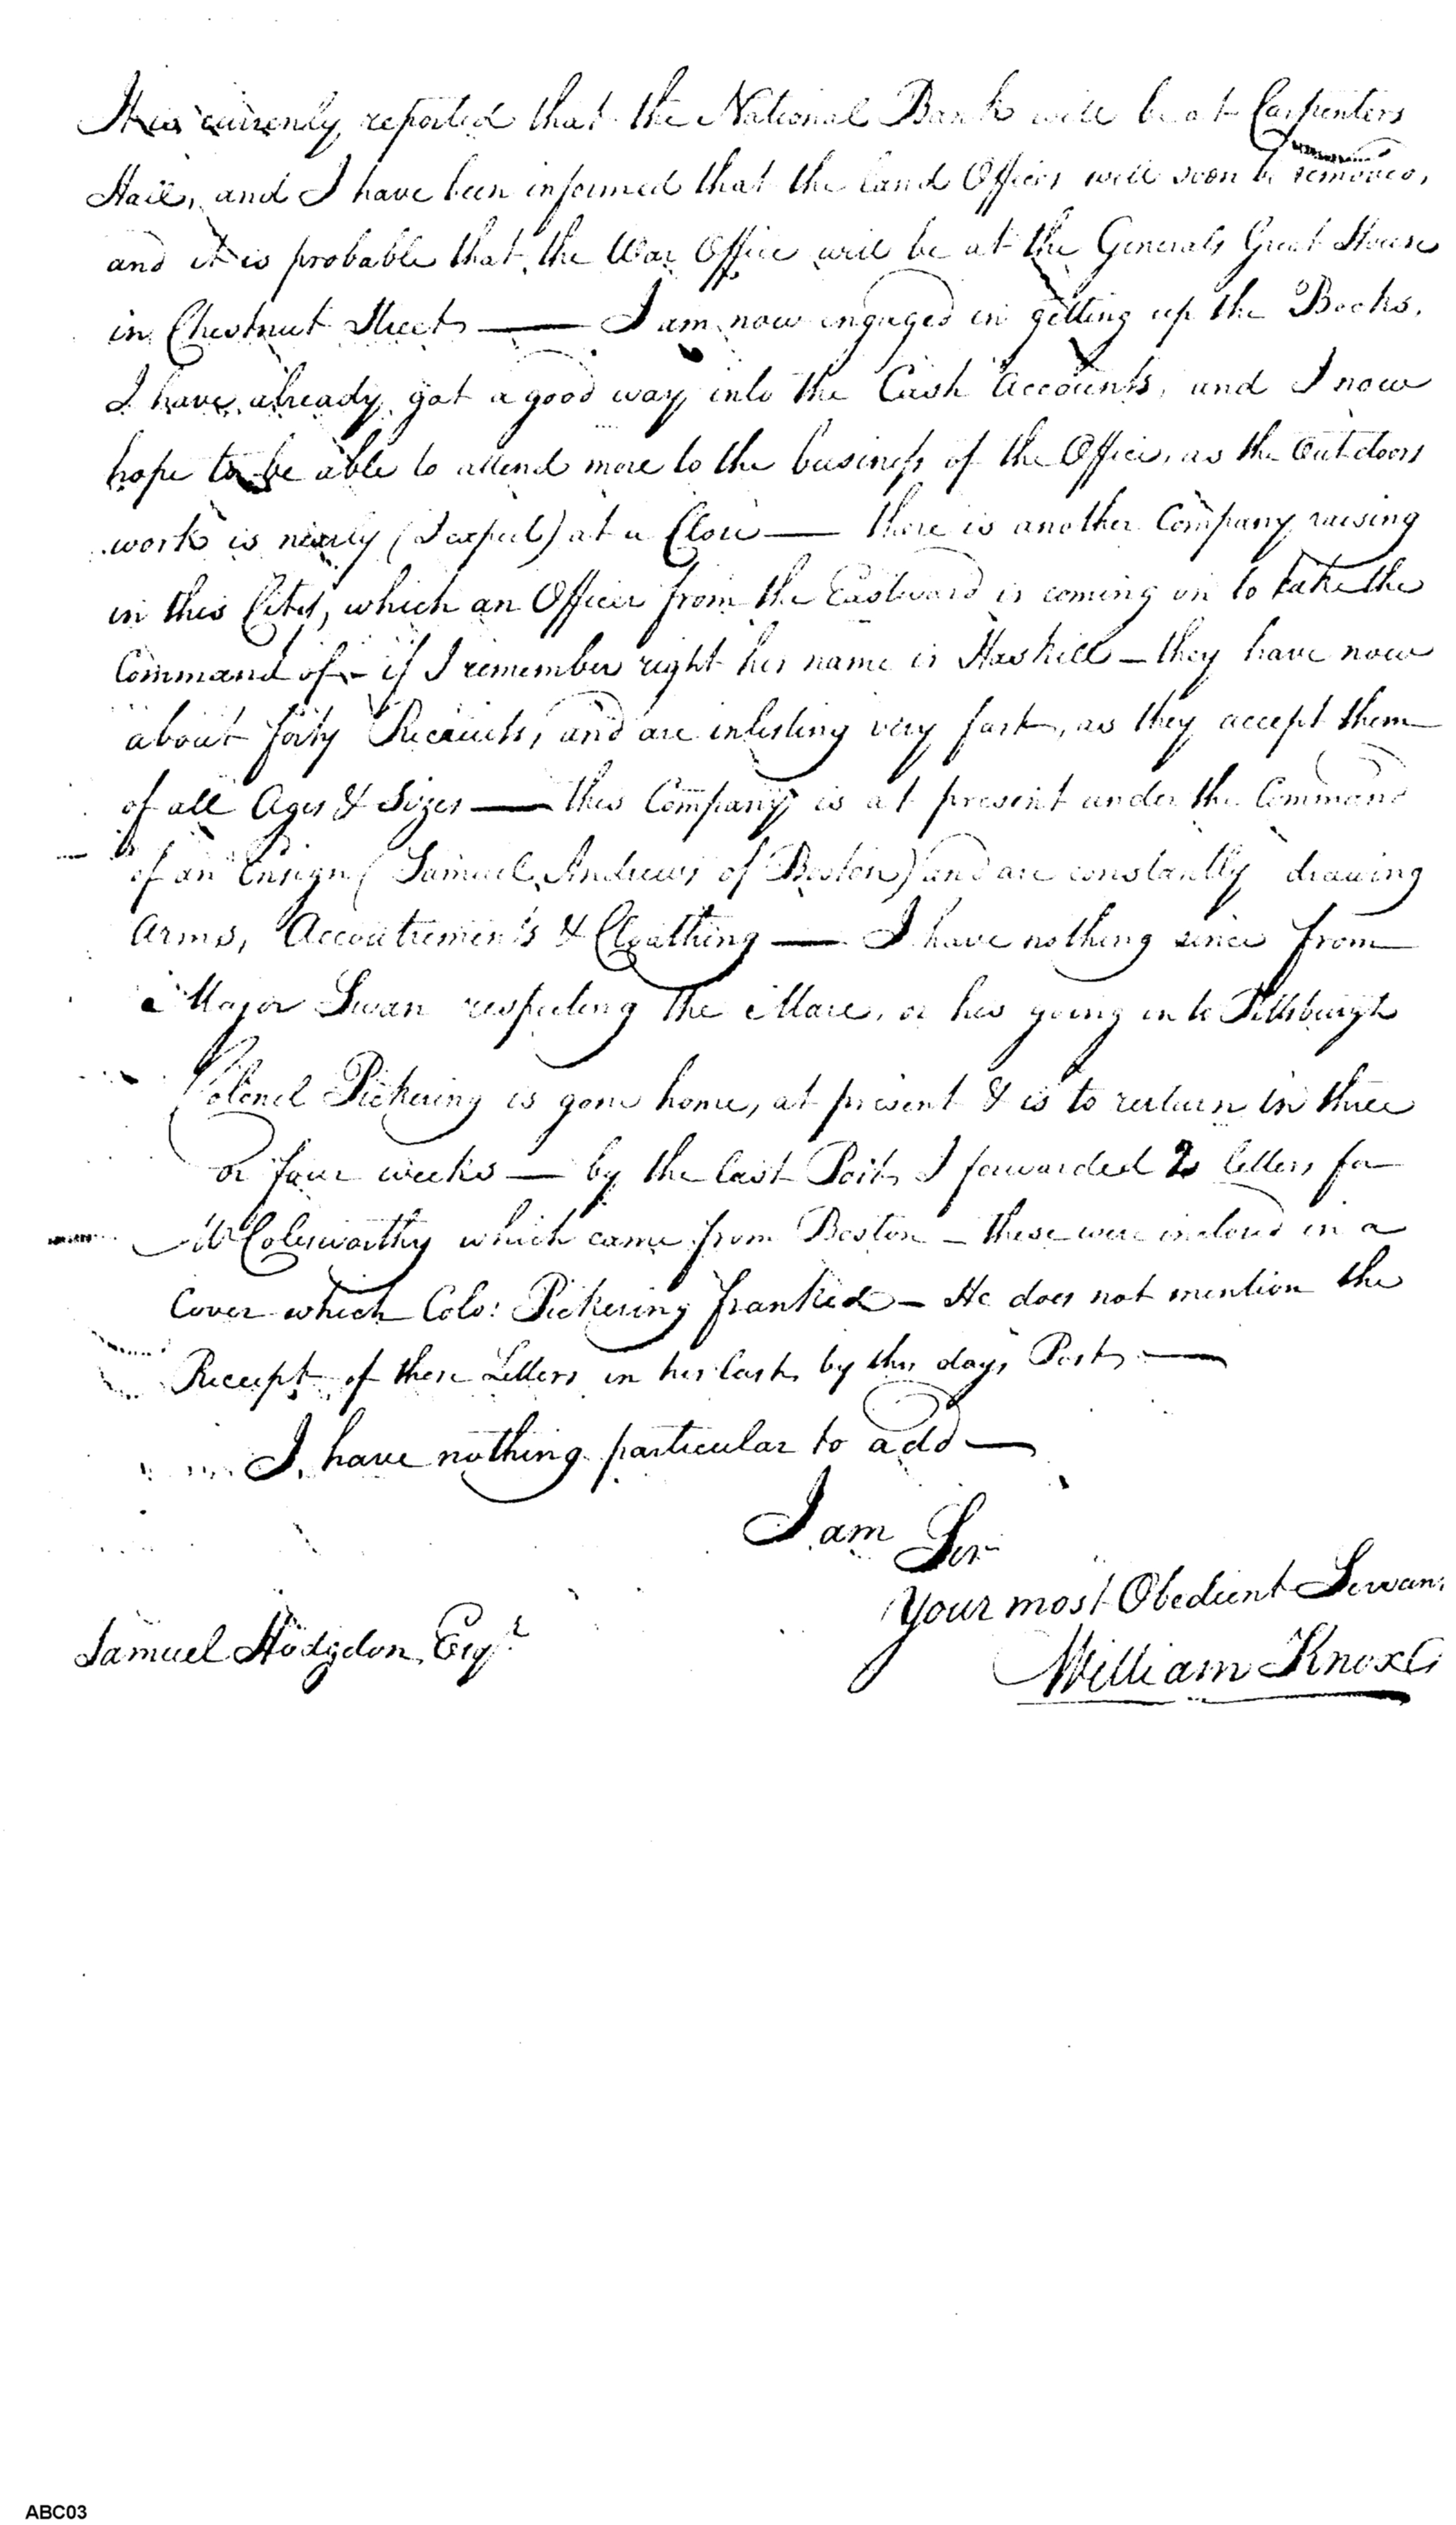 It is currently reported that the National Bank will be at Carpenters
Hall, and I have been informed that the land Offices will soon be removed,
and it is probable that the War Office will be at the Generals Great House
in Chestnut Street — I am now engaged in getting up the Books.
I have already got a good way into the Cash Accounts, and I now
hope to be able to attend more to the business of the Office, as the Out doors
work is nearly (I expect) at a Close — there is another Company raising
in this City, which an Officer from the Eastward is coming on to take the
Command of - if I remember right his name is Haskell - they have now
about forty Recruits, and are inlisting very fast, as they accept them
of all Ages & Sizes — this Company is at present under the Command
of an Ensign (Samuel Andrews of Boston) and are constantly drawing
Arms, Accoutrements & Cloathing — I have nothing since from
Major Swan respecting the Mare, or his going in to Pittsburgh
Colonel Pickering is gone home, at present & is to return in three
or four weeks — by the last Post, I forwarded 2 letters for
Mr Colesworthy which came from Boston - these were inclosed in a
Cover which Colo: Pickering franked - He does not mention the
Receipt of these Letters in his last, by this days Post —
I have nothing particular to add —
I am Sir
Your most Obedient Servant
Samuel Hodgdon Esqr
William Knox
ABC03